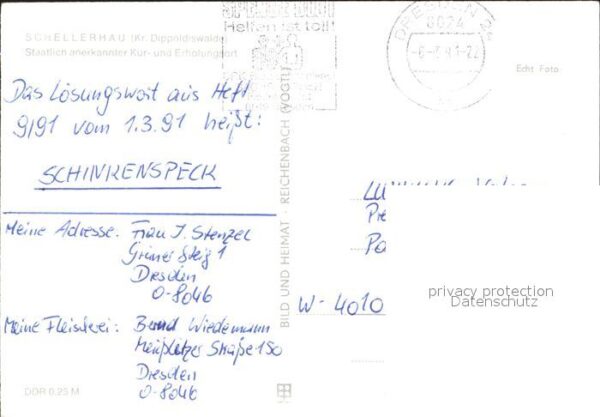 SCHELLERHAU (Kr. Dippoldiswalde)
Staatlich anerkannter Kur- und Erholungsort
Helfen ist toll!
DRESDEN
8024
Echt Foto
Das Lösungswort aus Heft
9/91 vom 1.3.91 heißt:
SCHINKENSPECK
Meine Adresse: Frau J. Stenzel
Grüner Steig 1
Dresden
O-8046
Meine Fleischerei: Bernd Wiedemann
Meußlitzer Straße 150
Dresden
O-8046
DDR 0,25 M
BILD UND HEIMAT · REICHENBACH (VOGTL)
W-4010
privacy protection
Datenschutz